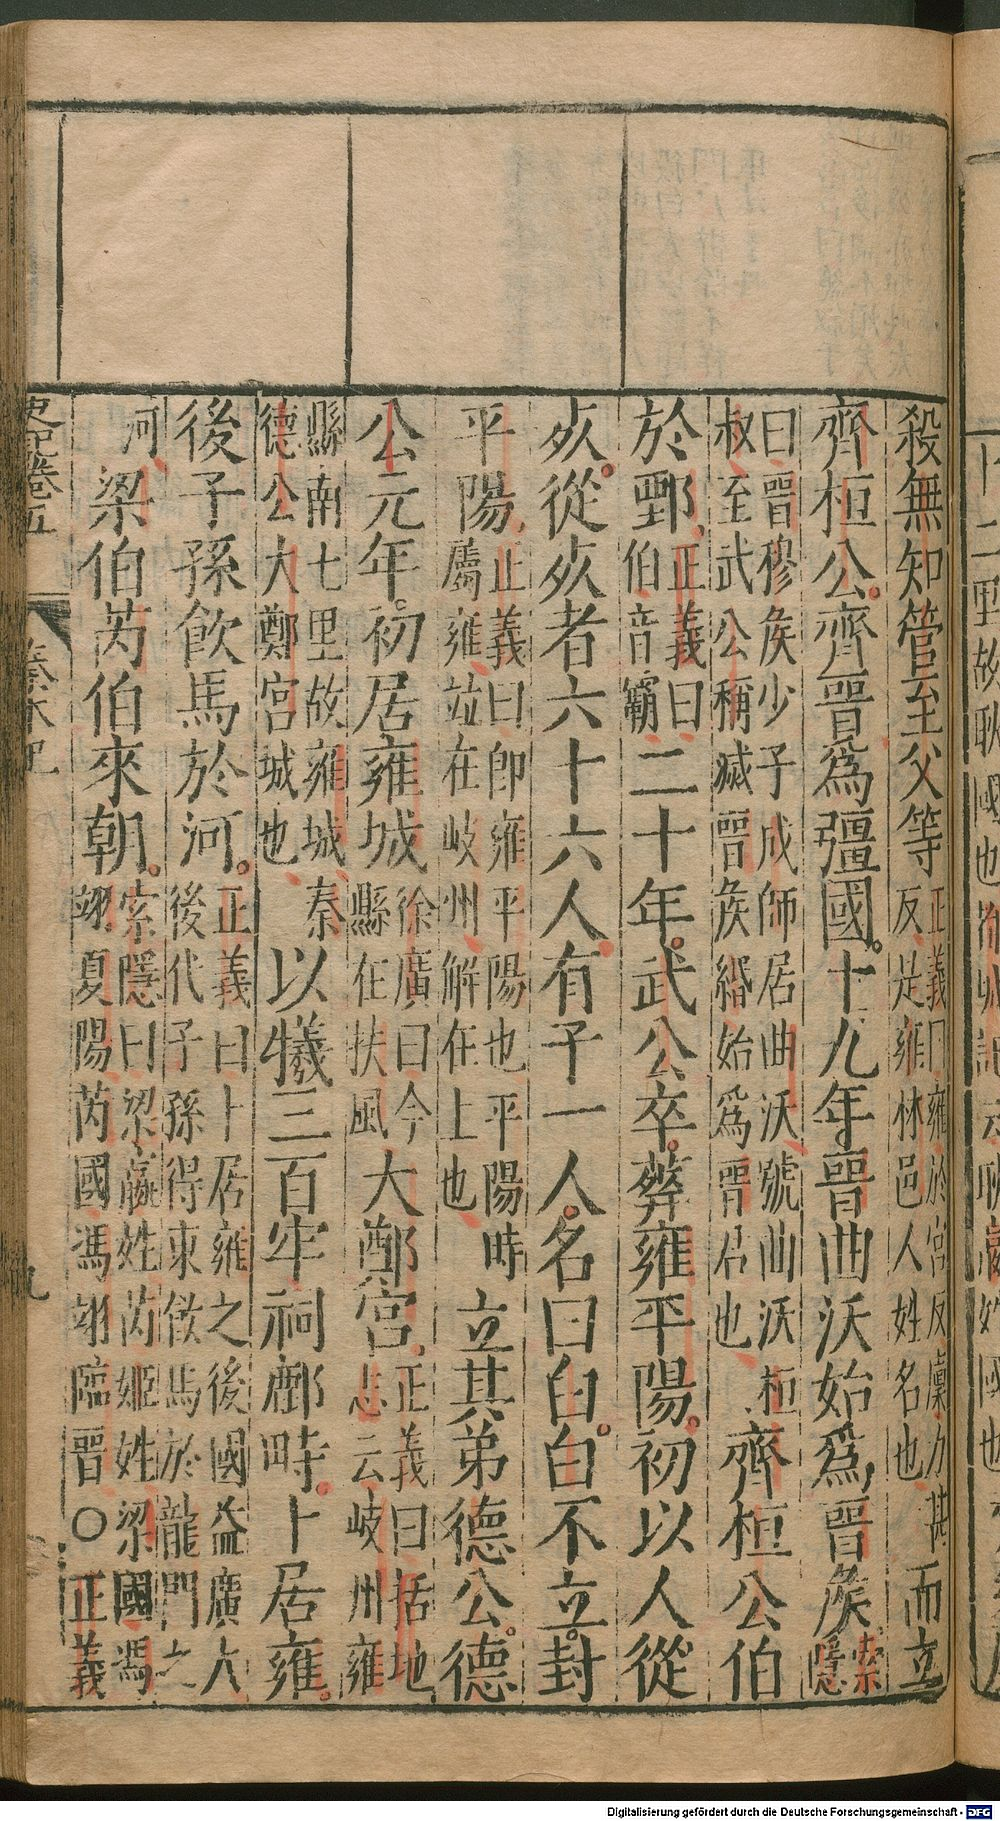 殺無知管至父等正義曰雍於宮反廩力甚反是雍林邑人姓名也而立
齊桓公。齊晉爲彊國。十九年晉曲沃始爲晉矦索隱
曰晉穆矦少子成師居曲沃號曲沃桓叔至武公稱滅晉矦緡始爲晉君也齊桓公伯
於鄄正義曰伯音霸二十年。武公卒。葬雍平陽。初以人從
死。從死者六十六人。有子一人。名曰白。白不立。封
平陽正義曰卽雍平陽也平陽時屬雍竝在岐州解在上也立其弟德公。德
公元年。初居雍城徐廣曰今縣在扶風大鄭宮正義曰括地志云岐州雍
縣南七里故雍城秦德公大鄭宮城也以犧三百牢祠鄜畤。卜居雍。
後子孫飮馬於河。正義曰卜居雍之後國益廣大後代子孫得東飮馬於龍門之
河梁伯芮伯來朝。索隱曰梁嬴姓芮姬姓梁國馮翊夏陽芮國馮翊臨晉○正義
史記卷五 秦本紀 九
Digitalisierung gefördert durch die Deutsche Forschungsgemeinschaft - DFG